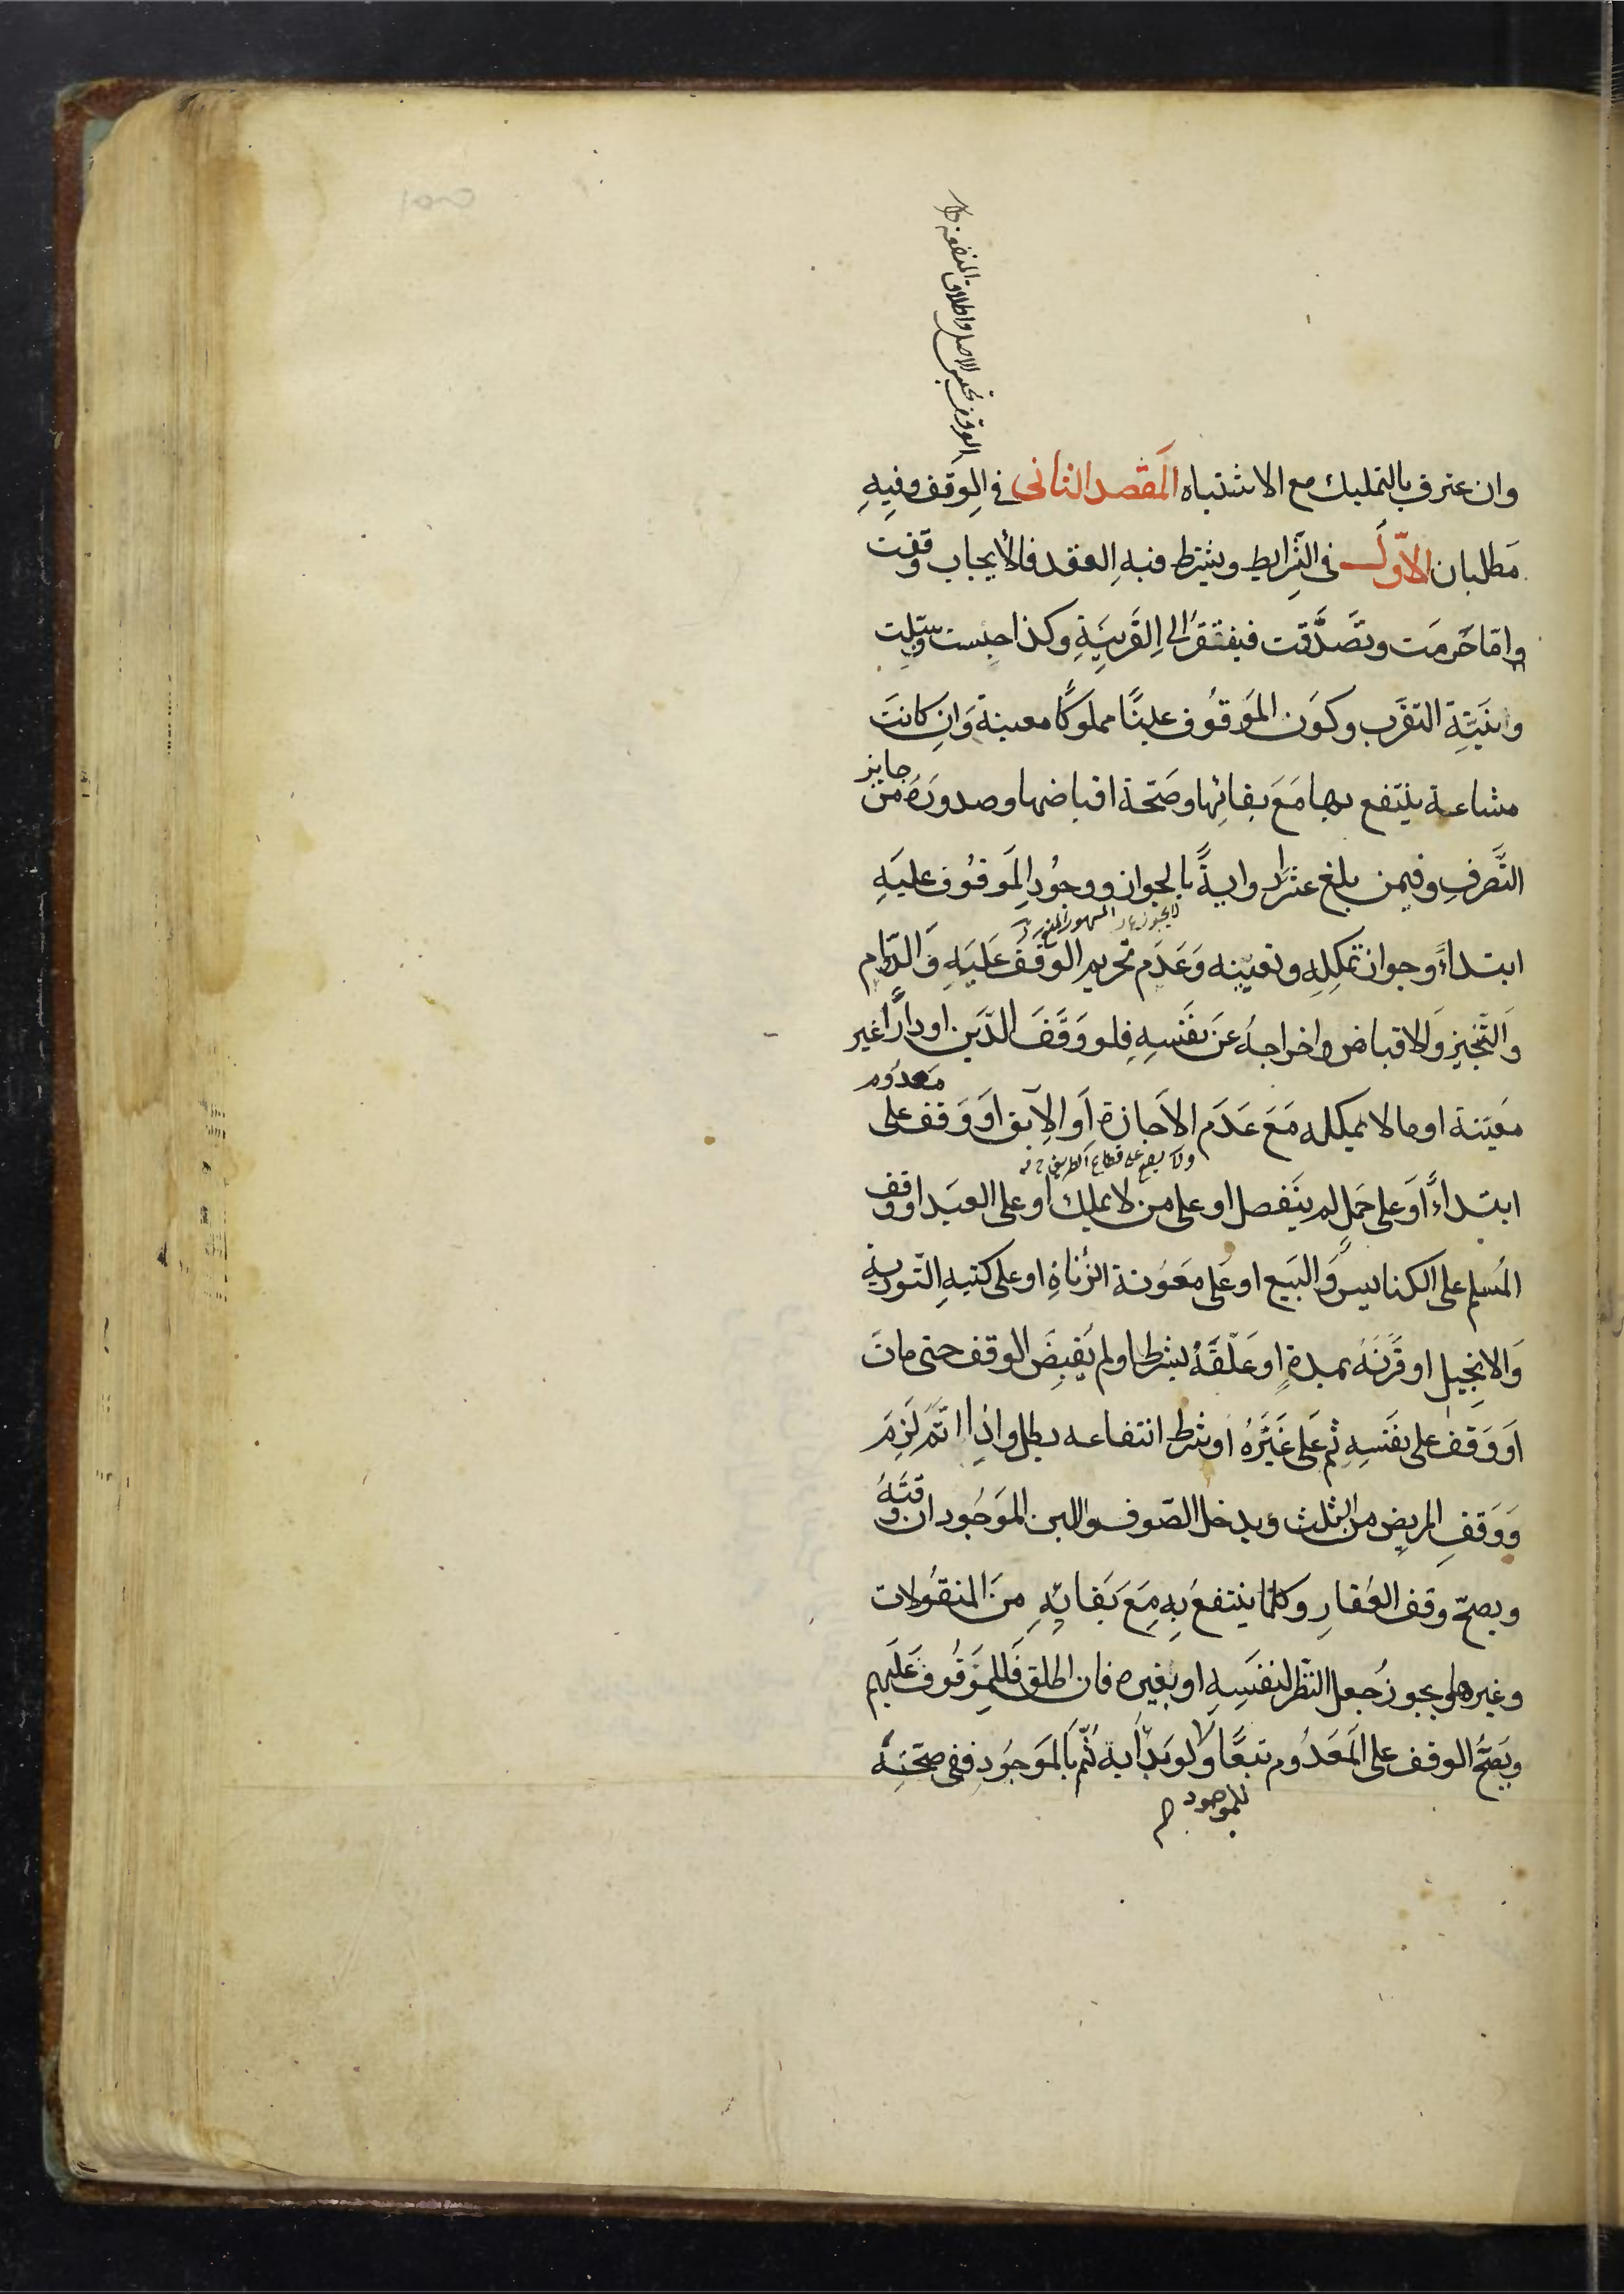 الوقف تحبيس الاصل واطلاق المنفعة
وان عترف بالتمليك مع الاشتباه المقصد الثانى فى الوقف وفيه
مطلبان الاوّل فى الشرايط ويشترط فيه العقد فالايجاب وقفت
وامّا حرمت وتصدّقت فيفتقر الى القرينة وكذا حبست وسبّلت
ونيّة التقرب وكون الموقوف عينًا مملوكًا معينة وان كانت
مشاعة ينتفع بها مع بقائها وصحّة اقباضها وصدوره من جايز
التّصرف وفيمن بلغ عشرا رواية بالجواز ووجود الموقوف عليه
لا يجوز على المشهور
ابتداءً وجواز تملكه وتعيينه وعدم تحريم الوقف عليه والدّوام
والتّنجيز والاقباض واخراجه عن نفسه فلو وقف الدّين او دارًا غير
معيّنة او ما لا يملكه مع عدم الاجازة او الابق او وقف على معدوم
ولا يصح على قطاع الطريق
ابتداءً او على حمل لم ينفصل او على من لا يملك او على العبد او وقف
المسلم على الكنايس والبيع او على معونة الزناة او على كتبه التورية
والانجيل او قرنه بمدة او علّقه بشرط او لم يقبض الوقف حتى مات
او وقف على نفسه ثم على غيره او شرط انتفاعه بطل واذا تم لزم
ووقف المريض من الثلث ويدخل الصّوف واللبن الموجود ان وقته
ويصحّ وقف العقار وكلما ينتفع به مع بقائه من المنقولات
وغيرها ويجوز جعل النّظر لنفسه او بغيره فان اطلق فللموقوف عليهم
ويصحّ الوقف على المعدوم تبعًا ولو بدأ به ثم بالموجود ففى صحّته
للموجود